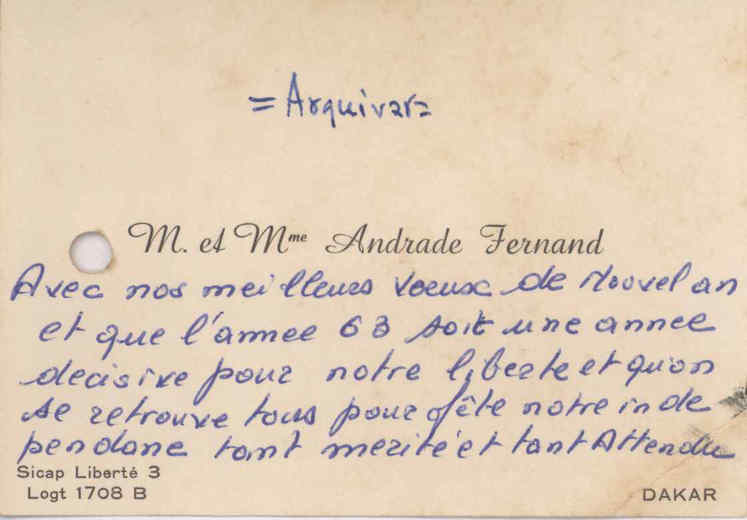 = Arquivar =
M. et Mme Andrade Fernand
Avec nos meilleurs voeux de Nouvel an
et que l'annee 63 soit une annee
decisive pour notre liberte et qu'on
se retrouve tous pour fête notre inde
pendanc tant merité et tant Attendu
Sicap Liberté 3
Logt 1708 B
DAKAR